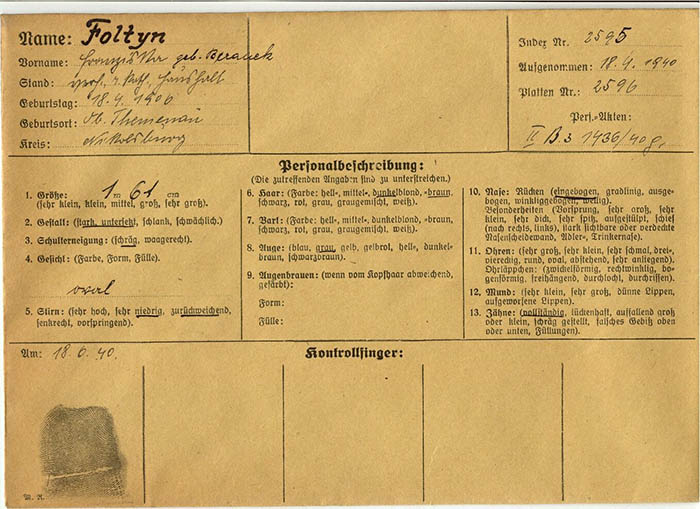 Name: Foltyn
Vorname: Franziska geb. Beranek
Stand: verh., r. kath., Haushalt
Geburtstag: 18.4.1906
Geburtsort: Ob. Themenau
Kreis: Nikolsburg
Index Nr. 2595
Aufgenommen: 18.4.1940
Platten Nr.: 2596
Pers.-Akten:
II B.3 1436/40g.
Personalbeschreibung:
(Die zutreffenden Angaben sind zu unterstreichen.)
1. Größe: 1 m 61 cm
(sehr klein, klein, mittel, groß, sehr groß).
2. Gestalt: (stark, untersetzt, schlank, schwächlich.)
3. Schulterneigung: (schräg, waagerecht).
4. Gesicht: (Farbe, Form, Fülle).
oval
5. Stirn: (sehr hoch, sehr niedrig, zurückweichend,
senkrecht, vorspringend).
6. Haar: (Farbe: hell-, mittel-, dunkelblond, -braun,
schwarz, rot, grau, graugemischt, weiß).
7. Bart: (Farbe: hell-, mittel-, dunkelblond, -braun,
schwarz, rot, grau, graugemischt, weiß).
8. Auge: (blau, grau, gelb, gelbrot, hell-, dunkel-
braun, schwarzbraun).
9. Augenbrauen: (wenn vom Kopfhaar abweichend,
gefärbt):
Form:
Fülle:
10. Nase: Rücken (eingebogen, gradlinig, ausge-
bogen, winkliggebogen, wellig).
Besonderheiten (Vorsprung, sehr groß, sehr
klein, sehr dick, sehr spitz, aufgestülpt, schief
(nach rechts, links), stark sichtbare oder verdeckte
Nasenscheidewand, Adler-, Trinkernase).
11. Ohren: (sehr groß, sehr klein, sehr schmal, drei-,
viereckig, rund, oval, abstehend, sehr anliegend).
Ohrläppchen: (zwickelförmig, rechtwinklig, bo-
genförmig, freihängend, durchlocht, durchrissen).
12. Mund: (sehr klein, sehr groß, dünne Lippen,
aufgeworfene Lippen).
13. Zähne: (vollständig, lückenhaft, auffallend groß
oder klein, schräg gestellt, falsches Gebiß oben
oder unten, Füllungen).
Am: 18.6.40.
Kontrollfinger:
M. R.